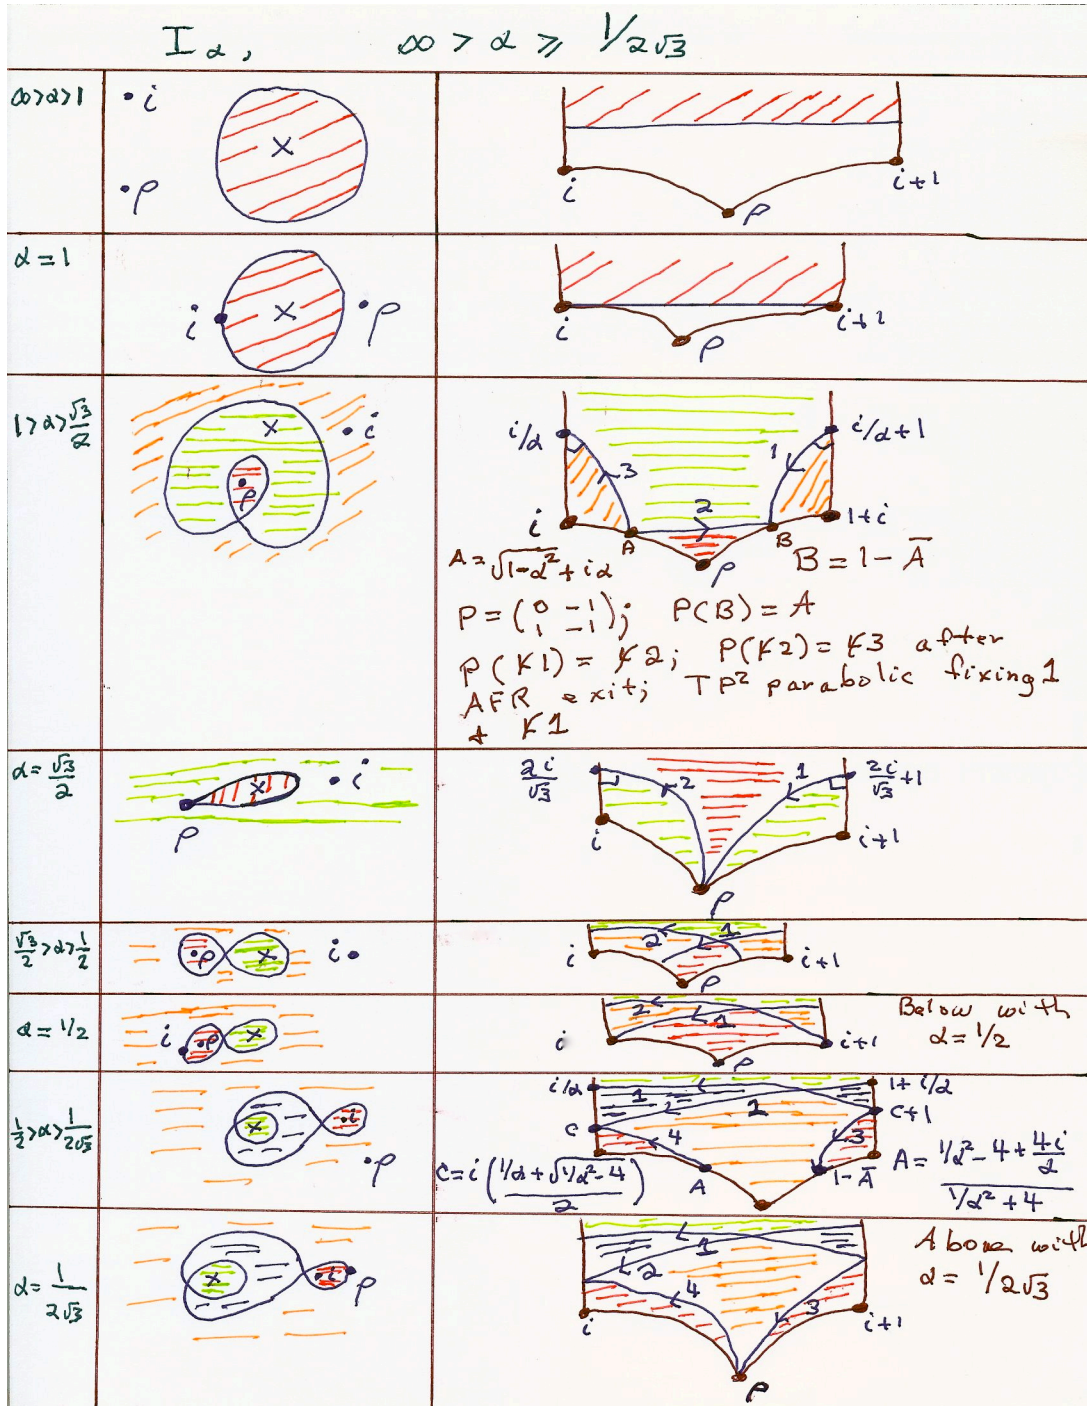 I_α, ∞ > α ≥ 1/2√3
∞>α>1
i
ρ
x
i
ρ
i+1
α=1
i
x
ρ
i
ρ
i+1
1>α>√3/2
x
i
ρ
i/α
i/α+1
3
1
2
i
1+i
A
B
ρ
A=√1-α²+iα
B=1-A̅
P=(0 -1; 1 -1); P(B)=A
P(K1)=K2; P(K2)=K3 after
AFR exit; TP² parabolic fixing 1
+ K1
α=√3/2
x
i
ρ
2i/√3
2
1
2i/√3+1
i
i+1
ρ
√3/2>α>1/2
ρ
x
i
i
2
1
i+1
ρ
α=1/2
i
ρ
x
i
2
1
i+1
ρ
Below with
α=1/2
1/2>α>1/2√3
x
i
ρ
i/α
1
2
1
1+i/α
C
C+1
4
3
A
1-A̅
C=i(1/α+√1/α²-4/2)
A=1/α²-4+4i/2/1/α²+4
α=1/2√3
x
i
ρ
1
2
4
3
i
i+1
ρ
Above with
α=1/2√3